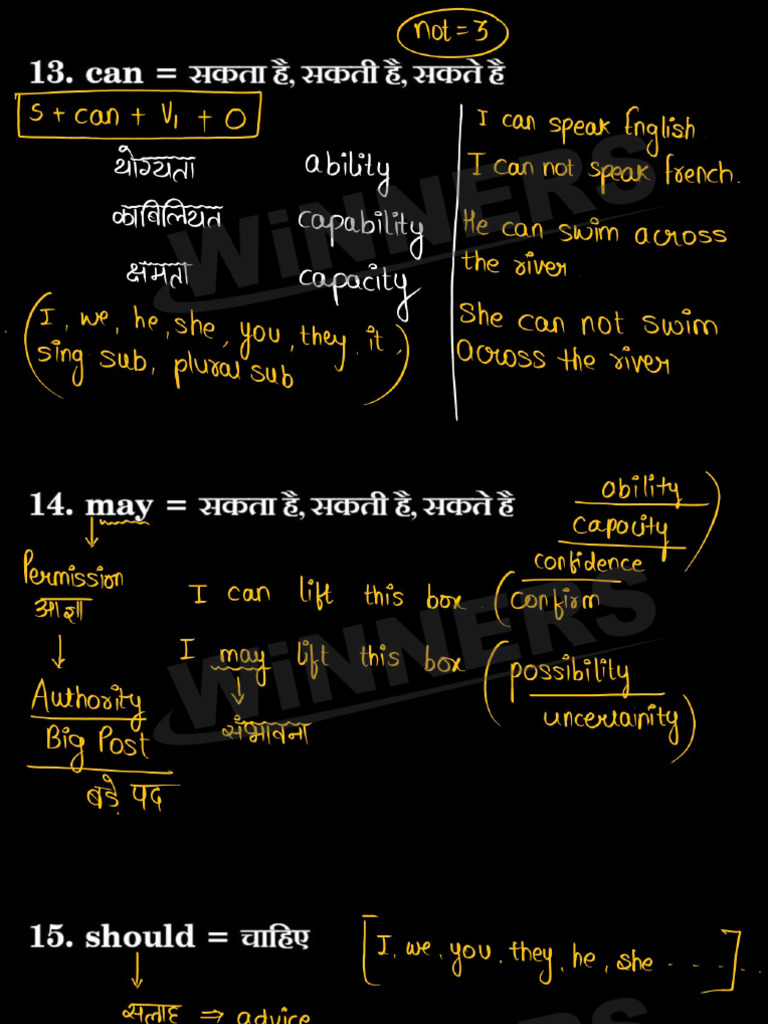 not = 3
13. can = सकता है, सकती है, सकते है
S + can + V1 + O
योग्यता ability
काबिलियत capability
क्षमता capacity
(I, we, he, she, you, they, it,
sing sub, plural sub)
I can speak English
I can not speak french.
He can swim across
the river
She can not swim
across the river
WiNNERS
14. may = सकता है, सकती है, सकते है
Permission
आज्ञा
Authority
Big Post
बड़े पद
ability
capacity
confidence
I can lift this box. (confirm)
I may lift this box (possibility
uncertainity)
संभावना
WiNNERS
15. should = चाहिए
[I, we, you, they, he, she - - - - -]..
सलाह ⇒ advice
WiNNERS